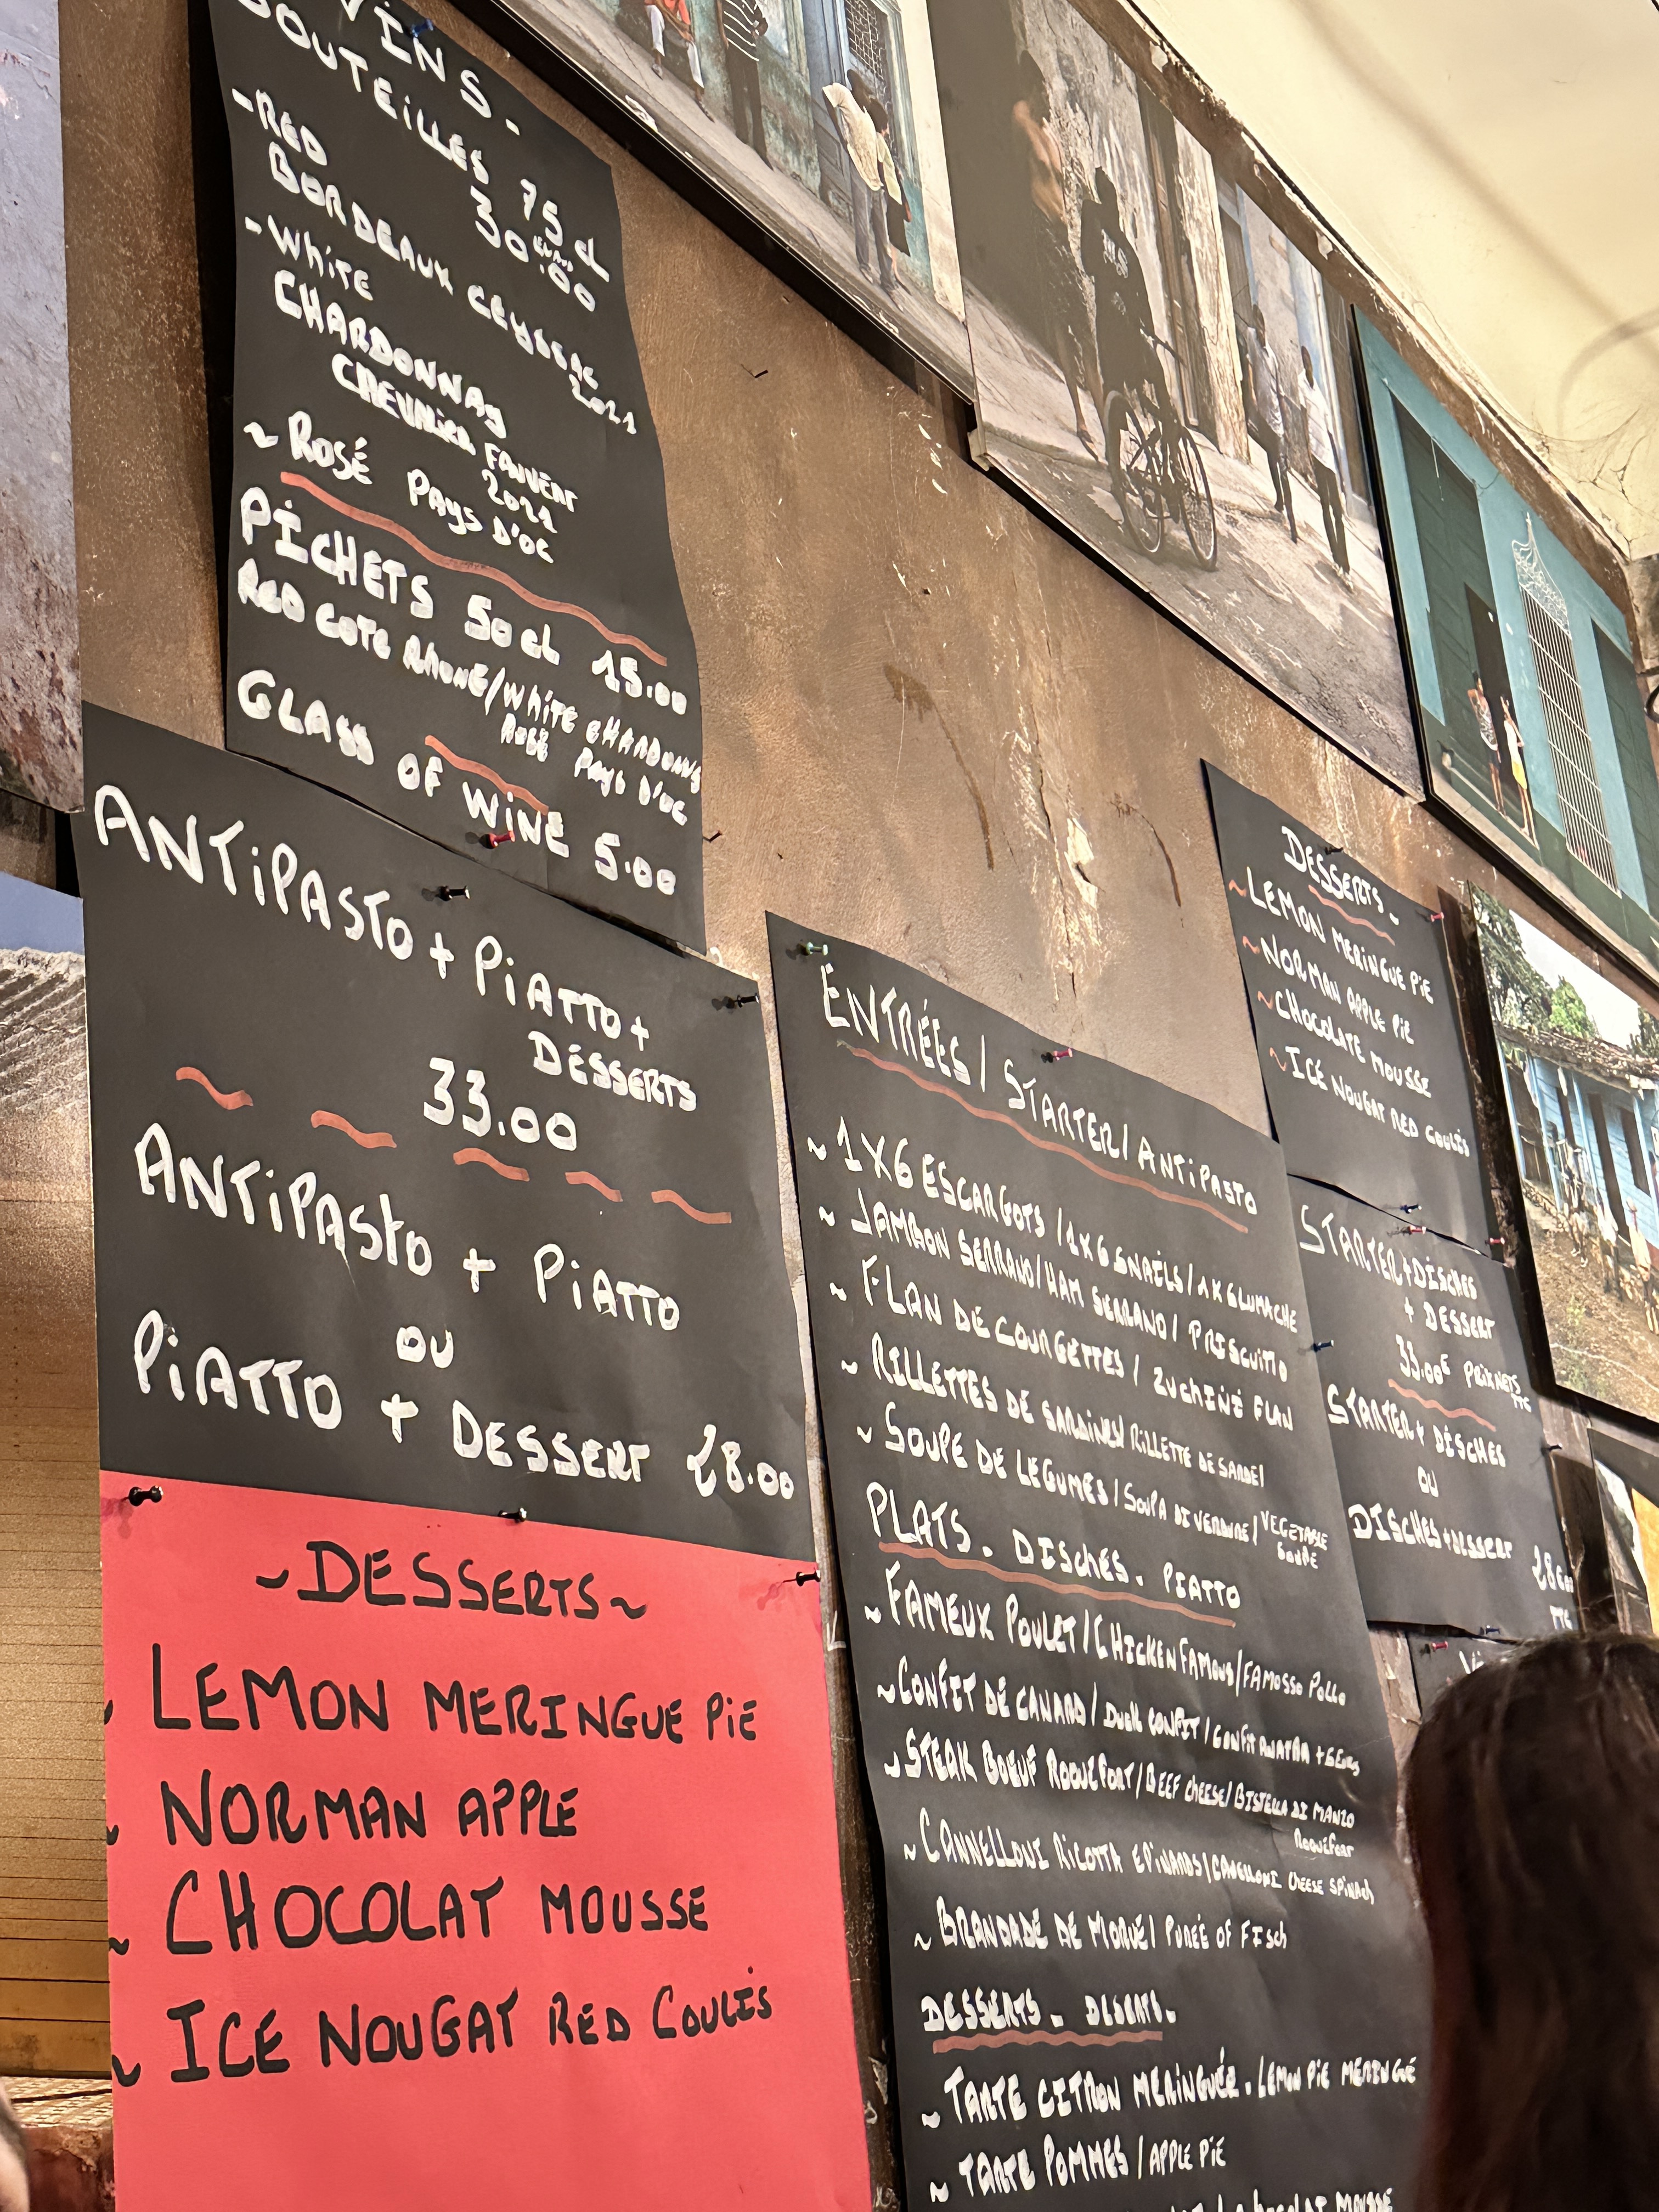 VINS.
BOUTEILLES 75 cL
30.00
-RED
BORDEAUX CEYSSAC
2021
-WHiTE
CHARDONNAY
2021
~ROSÉ PAYS D'OC
PiCHETS 50 cL 15.00
RED COTE RHONE/WHiTE CHARDONNAY
ROSÉ PAYS D'OC
GLASS OF WiNE 5.00
ANTiPASTO + PiATTO +
DESSERTS
33.00
ANTiPASto + PiATTO
OU
PiATTO + DESSERT 28.00
~DESSERTS~
~ LEMON MERINGUE PiE
~ NORMAN APPLE
~ CHOCOLAT MOUSSE
~ ICE NOUGAT RED COULiS
ENTRÉES / STARTER / ANTiPASTO
~ 1X6 ESCARGOTS / 1X6 SNAiLS / 1X6 LUMACHE
~ JAMBON SERRANO/HAM SERRANO/ PRISCUITTO
~ FLAN DE COURGETTES / ZUCHiNi FLAN
~ RILLETTES DE SARDINES/ RILLETTE DE SARDE/
~ SOUPE DE LEGUMES / SOUPA DI VERDURE/ VEGETABLE
SOUPE
PLATS. DISCHES. PIATTO
~ FAMEUX POULET / CHICKEN FAMOUS/FAMOSSO POLLO
~CONFIT DE CANARD / DUCK CONFIT / CONFIT ANATRA
~STEAK BOEUF ROQUEFORT / BEEF CHEESE/ BISTELLA DI MANZO
ROQUEFORT
~ CANNELLONI RICOTTA EPiNARDS/CANELLONI CHEESE SPINACH
~ BRANDADE DE MORUE / PURÉE OF FISCH
DESSERTS.
~ TARTE CITRON MERINGUÉE. LEMON PiE MERINGUE
~ TARTE POMMES / APPLE PiE
CHOCOLAT MOUSSE
DESSERTS-
~LEMON MERINGUE PiE
~NORMAN APPLE PiE
~CHOCOLATE MOUSSE
~ICE NOUGAT RED COULiS
STARTER+DISCHES
+ DESSERT
33.00€ PRIX NETS
TTC
STARTER + DISCHES
OU
DISCHES+DESSERT
28€00
TTC
Vi